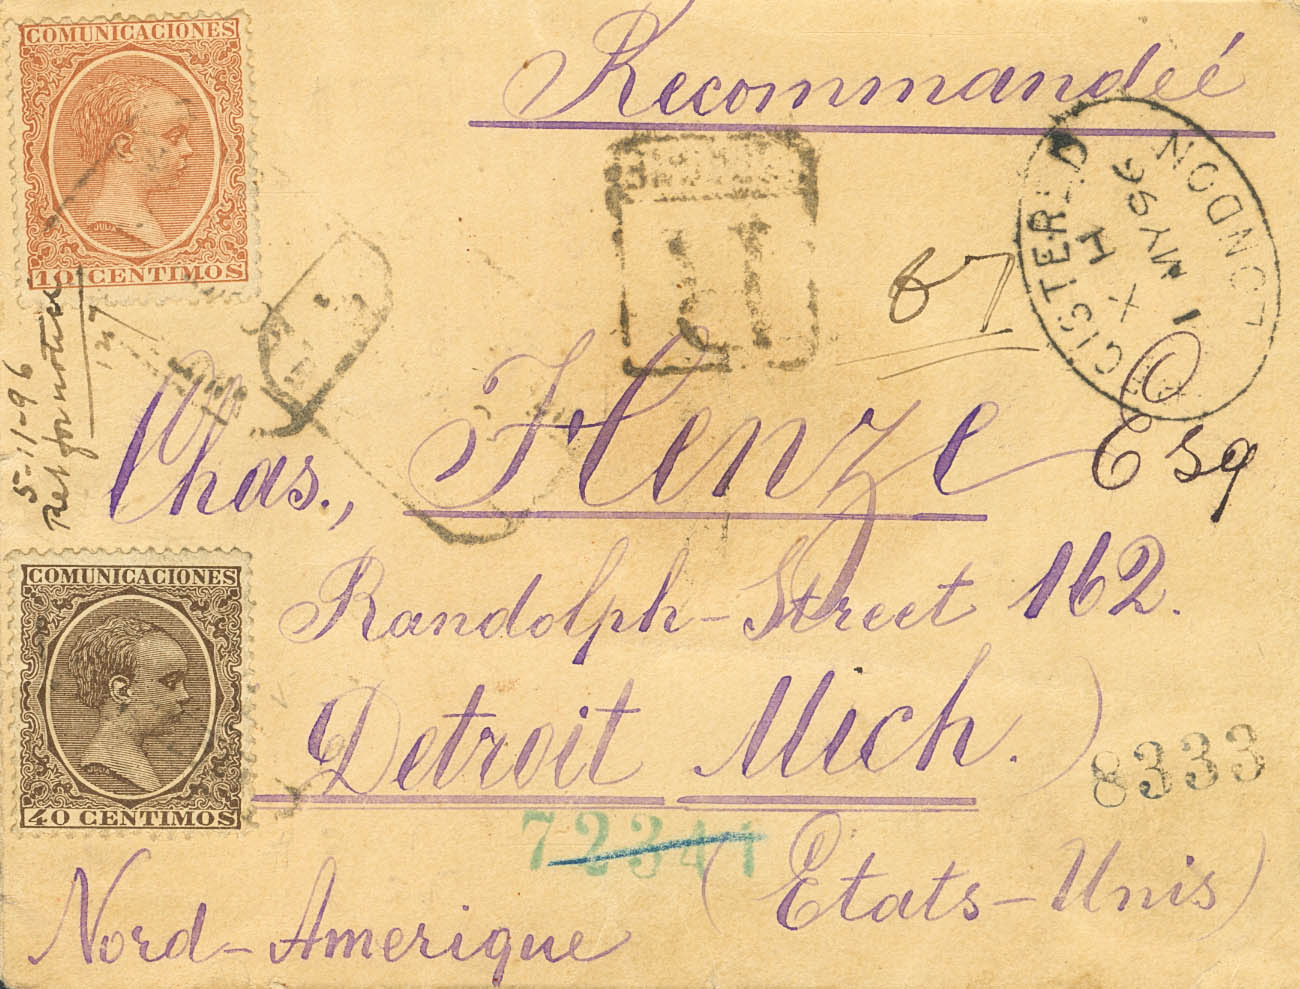 COMUNICACIONES
10 CENTIMOS
Recommandeé
R
REGISTERED LONDON
1 MY 96
H X
87
5-11-96
Ret for notice
Chas., Henze Esq
Randolph-Street 162.
Detroit Mich.
COMUNICACIONES
40 CENTIMOS
8333
72344
(Etats-Unis)
Nord-Amerique